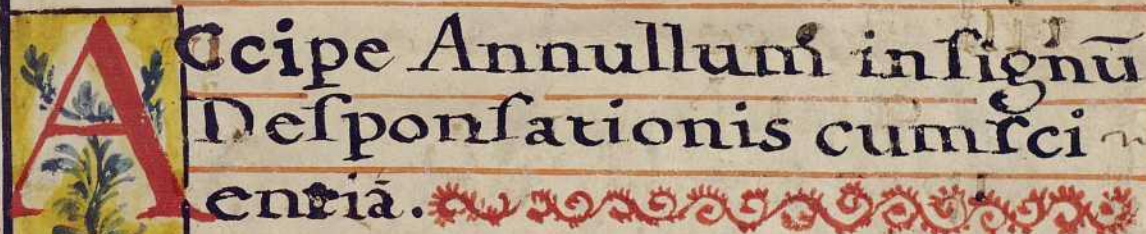 ACcipe Annullum inſignū
Deſponſationis cumſci
entiā.